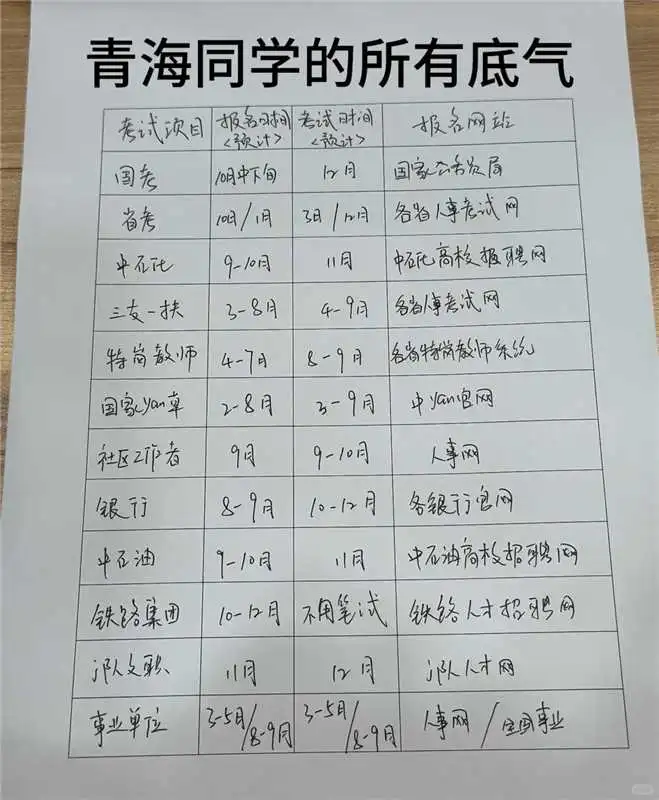 青海同学的所有底气
考试项目 报名时间<预计> 考试时间<预计> 报名网站
国考 10月中下旬 12月 国家公务员局
省考 10月/1月 3月/12月 各省人事考试网
中石化 9-10月 11月 中石化高校报聘网
三支一扶 3-8月 4-9月 各省人事考试网
特岗教师 4-7月 8-9月 各省特岗教师系统
国家yan草 2-8月 3-9月 中yan官网
社区工作者 9月 9-10月 人事网
银行 8-9月 10-12月 各银行官网
中石油 9-10月 11月 中石油高校招聘网
铁路集团 10-12月 不用笔试 铁路人才招聘网
jD队文职 11月 12月 jD队人才网
事业单位 3-5月/8-9月 3-5月/8-9月 人事网/全国事业